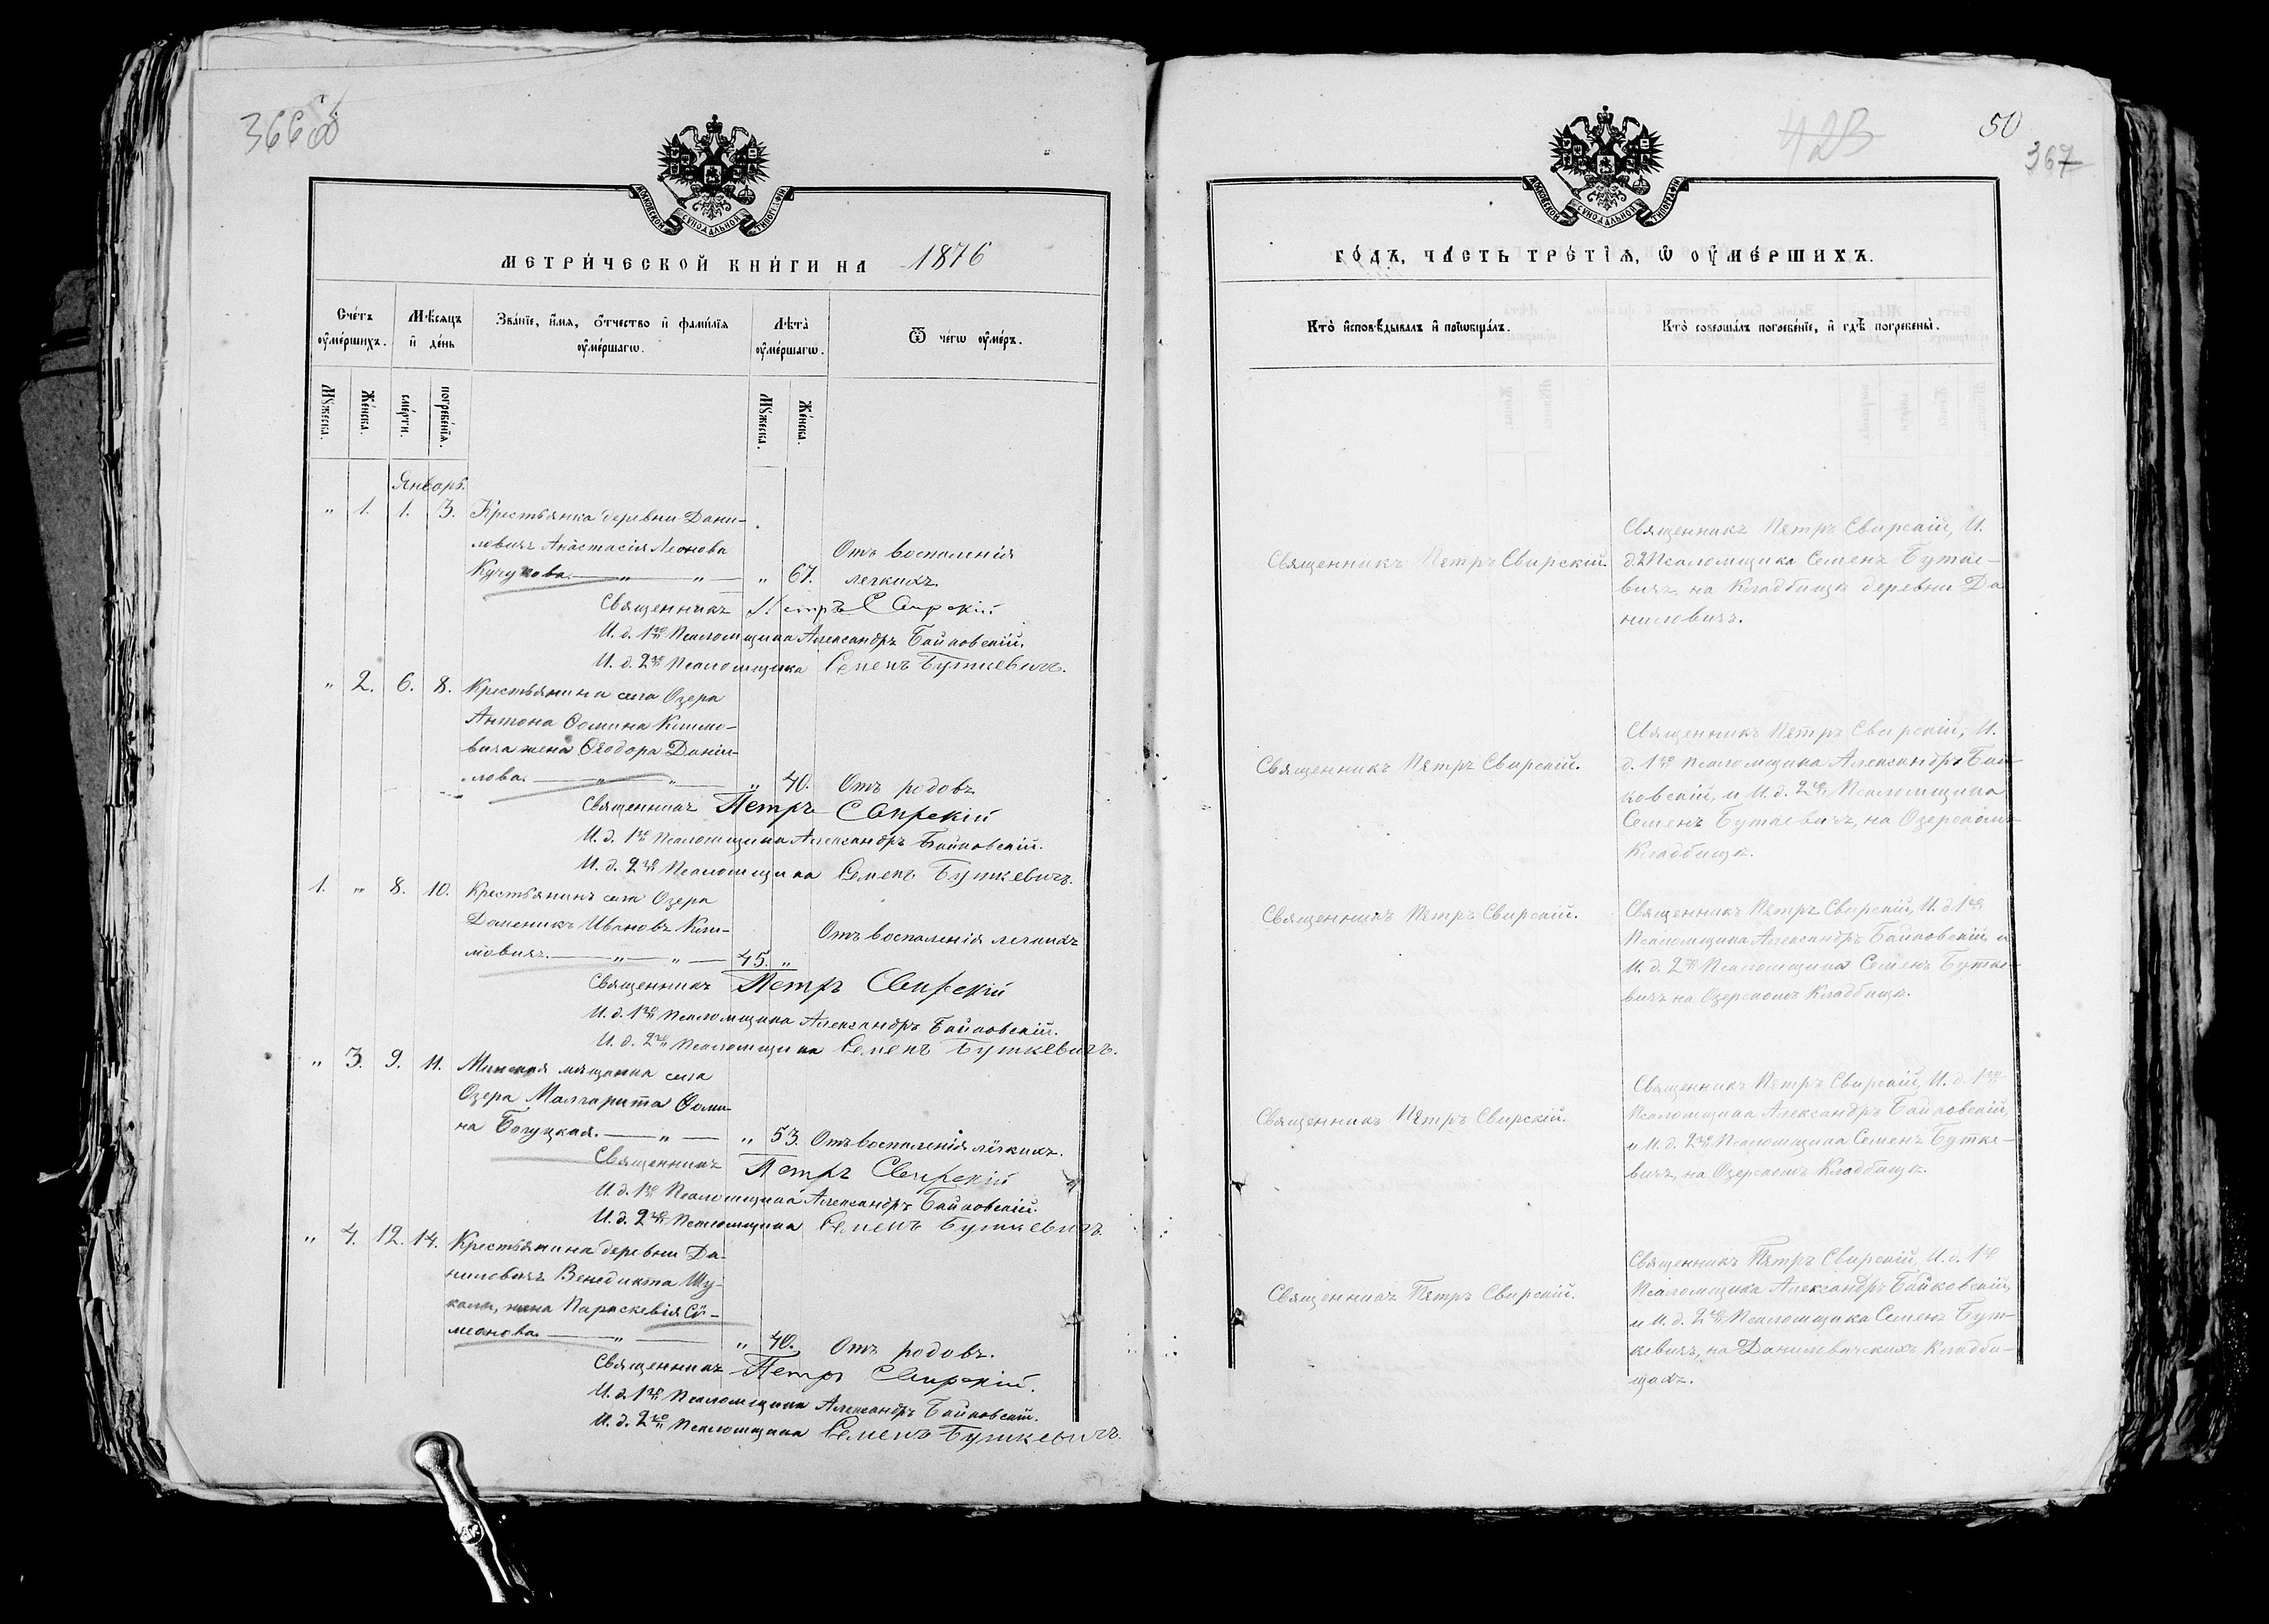 366 об
МОСКОВСКОЙ СѴНОДАЛЬНОЙ ТИПОГРАФІИ
МЕТРИ́ЧЕСКОЙ КНИ́ГИ НА 1876
Сче́тъ ᲂу҆ме́ршихъ.
Мѣ́сяцъ и҆ де́нь
Зва́нїе, и҆́мя, ѻ҆́тчество и҆ фамѝлїя ᲂу҆ме́ршагѡ.
Лѣ́та ᲂу҆ме́ршагѡ.
Ѿ чегѡ̀ ᲂу҆́меръ.
Мꙋ́жеска.
Же́нска.
сме́рти.
погребе́нїя.
Мꙋ́жеска.
Же́нска.
Январь.
" 1. 1. 3. Крестьянка деревни Дани-
ловичъ Анастасія Леонова
Кучукова. — " — " — " 67. Отъ воспаленія
легкихъ.
Священникъ Петръ Свирскій
И. д. 1го Псаломщика Александръ Байковскій.
И. д. 2го Псаломщика Семенъ Буткевичъ.
" 2. 6. 8. Крестьянина села Озера
Антона Ѳомина Климо-
вича жена Ѳеодора Данiи-
лова. — " — " — " 40. Отъ родовъ
Священникъ Петръ Свирскій
И. д. 1го Псаломщика Александръ Байковскій.
И. д. 2го Псаломщика Семенъ Буткевичъ.
1. " 8. 10. Крестьянинъ села Озера
Доменикъ Ивановъ Кли-
мовичъ. — " — " — 45. " Отъ воспаленія легкихъ
Священникъ Петръ Свирскій
И. д. 1го Псаломщика Александръ Байковскій.
И. д. 2го Псаломщика Семенъ Буткевичъ.
" 3. 9. 11. Минская мѣщанка села
Озера Малгарита Ѳоми-
на Богуцкая. — " — " 53. Отъ воспаленія лёгкихъ.
Священникъ Петръ Свирскій
И. д. 1го Псаломщика Александръ Байковскій.
И. д. 2го Псаломщика Семенъ Буткевичъ.
" 4. 12. 14. Крестьянина деревни Да-
ниловичъ Венедикта Шу-
кали, жена Параскевія Сѵ-
меонова. — " — " 40. Отъ родовъ.
Священникъ Петръ Свирскій.
И. д. 1го Псаломщика Александръ Байковскій.
И. д. 2го Псаломщика Семенъ Буткевичъ.
423
50
367
МОСКОВСКОЙ СѴНОДАЛЬНОЙ ТИПОГРАФІИ
ГО́ДЪ, ЧА́СТЬ ТРЕ́ТІѦ, Ѡ ОУ҆МЕ́РШИХЪ.
Кто̀ и҆сповѣ́дывалъ и҆ прїѡбща́лъ.
Кто̀ соверша́лъ погребе́нїе, и҆ гдѣ̀ погребены̀.
Священникъ Петръ Свирскій.
Священникъ Петръ Свирскій, И.
д. 2го Псаломщика Семенъ Бутке-
вичъ, на Кладбищѣ деревни Да
ниловичъ.
Священникъ Петръ Свирскій.
Священникъ Петръ Свирскій, И.
д. 1го Псаломщика Александръ Бай-
ковскій, и И. д. 2го Псаломщика
Семенъ Буткевичъ, на Озерскомъ
Кладбищѣ.
Священникъ Петръ Свирскій.
Священникъ Петръ Свирскій, И. д. 1го
Псаломщика Александръ Байковскій, и
И. д. 2го Псаломщика Семенъ Бутке-
вичъ на Озерскомъ Кладбищѣ.
Священникъ Петръ Свирскій.
Священникъ Петръ Свирскій, И. д. 1го
Псаломщика Александръ Байковскій,
и И. д. 2го Псаломщика Семенъ Бутке-
вичъ, на Озерскомъ Кладбищѣ.
Священникъ Петръ Свирскій.
Священникъ Петръ Свирскій, И. д. 1го
Псаломщика Александръ Байковскій,
и И. д. 2го Псаломщика Семенъ Бут-
кевичъ, на Даниловичскихъ Кладби-
щахъ.